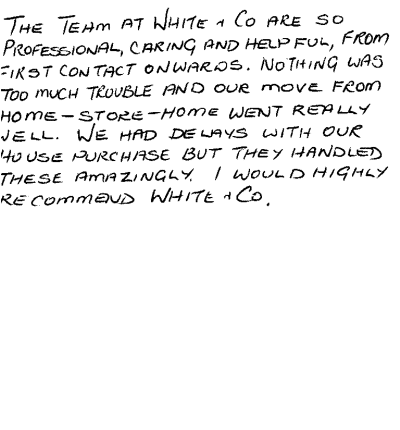 THE TEAM AT WHITE + CO ARE SO
PROFESSIONAL, CARING AND HELPFUL, FROM
FIRST CONTACT ONWARDS. NOTHING WAS
TOO MUCH TROUBLE AND OUR MOVE FROM
HOME-STORE-HOME WENT REALLY
WELL. WE HAD DELAYS WITH OUR
HOUSE PURCHASE BUT THEY HANDLED
THESE AMAZINGLY. I WOULD HIGHLY
RECOMMEND WHITE + CO.